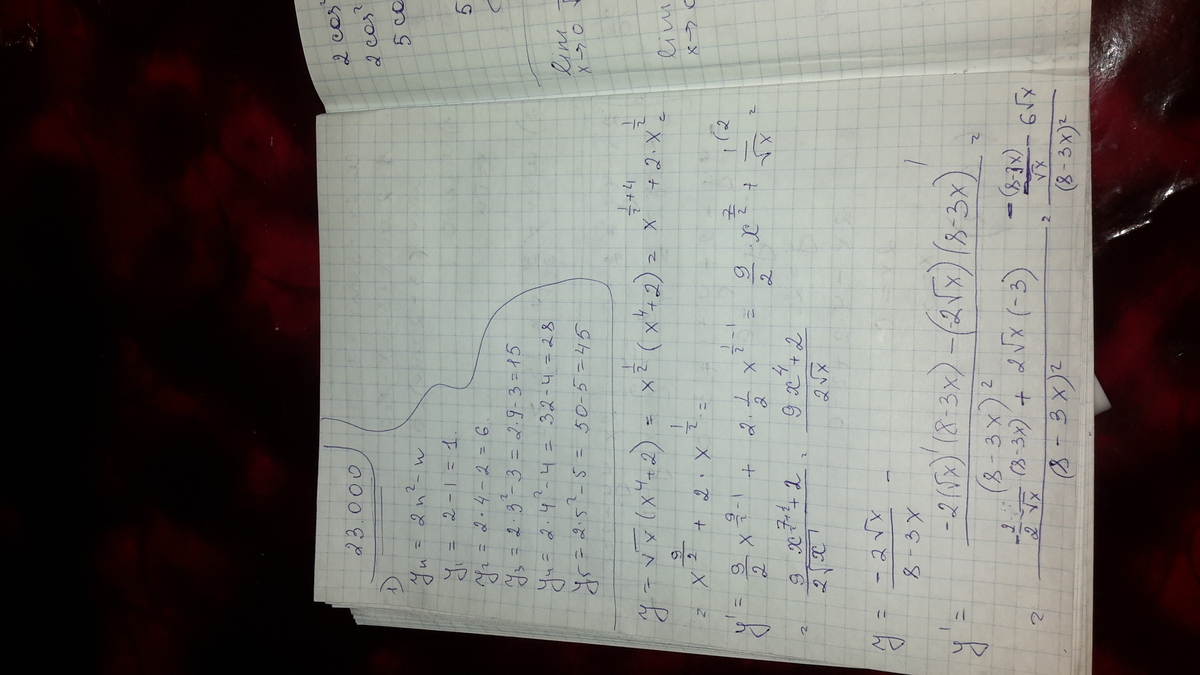 23.000
1)
yn = 2n² - n
y₁ = 2 - 1 = 1
y₂ = 2·4 - 2 = 6
y₃ = 2·3² - 3 = 2·9 - 3 = 15
y₄ = 2·4² - 4 = 32 - 4 = 28
y₅ = 2·5² - 5 = 50 - 5 = 45
y = √x (x⁴+2) = x^(1/2) (x⁴+2) = x^(1/2+4) + 2·x^(1/2) =
= x^(9/2) + 2·x^(1/2) =
y' = 9/2 x^(9/2-1) + 2·1/2 x^(1/2-1) = 9/2·x^(7/2) + 1/√x =
= (9x^(7+1)+2)/(2√x) = (9x⁴+2)/(2√x)
y = (-2√x)/(8-3x) -
y' = (-2(√x)'(8-3x) - (-2√x)(8-3x)')/(8-3x)² =
= (-2/(2√x)·(8-3x) + 2√x(-3))/(8-3x)² = (-(8-3x)/√x - 6√x)/(8-3x)²
2 cos²
2 cos²
5 co
5
lim x→0 √
lim x→0